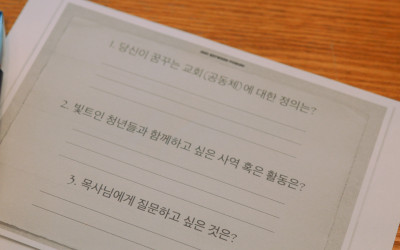 1. 당신이 꿈꾸는 교회(공동체)에 대한 정의는?
2. 빛트인 청년들과 함께하고 싶은 사역 혹은 활동은?
3. 목사님에게 질문하고 싶은 것은?